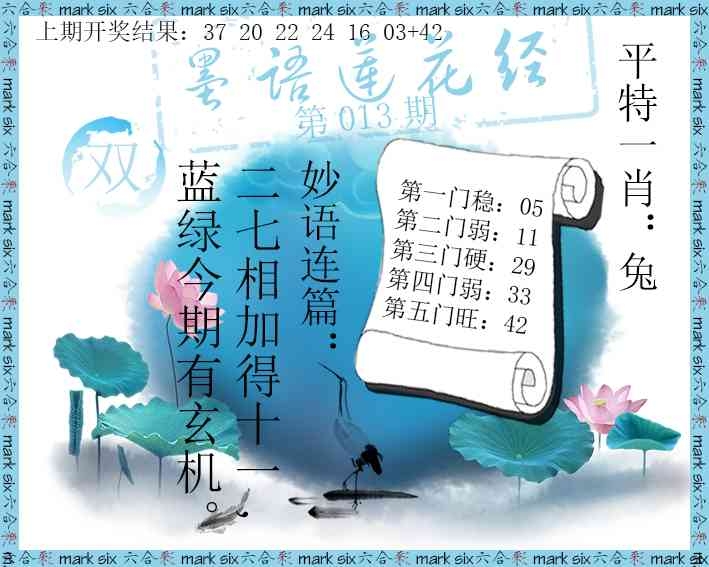 六合彩 mark six 六合彩 mark six 六合彩 mark six 六合彩 mark six 六合彩 mark six 六合彩
上期开奖结果：37 20 22 24 16 03+42
墨语莲花经
第013期
双
平特一肖：兔
第一门稳：05
第二门弱：11
第三门硬：29
第四门弱：33
第五门旺：42
妙语连篇：
二七相加得十一，
蓝绿今期有玄机。
彩 mark six 六合彩 mark six 六合彩 mark six 六合彩 mark six 六合彩 mark six 六合彩